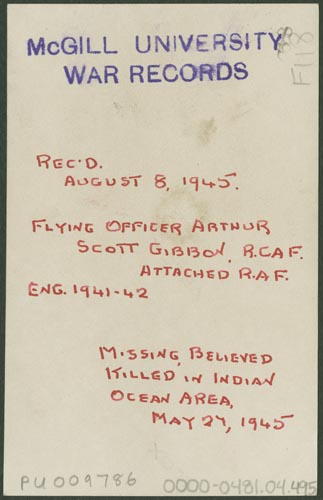 McGILL UNIVERSITY
WAR RECORDS
F118
REC'D.
AUGUST 8, 1945.
FLYING OFFICER ARTHUR
SCOTT GIBBON, R.C.A.F.
ATTACHED R.A.F.
ENG. 1941-42
MISSING, BELIEVED
KILLED IN INDIAN
OCEAN AREA,
MAY 27, 1945
PU009786
0000-0481.04.495